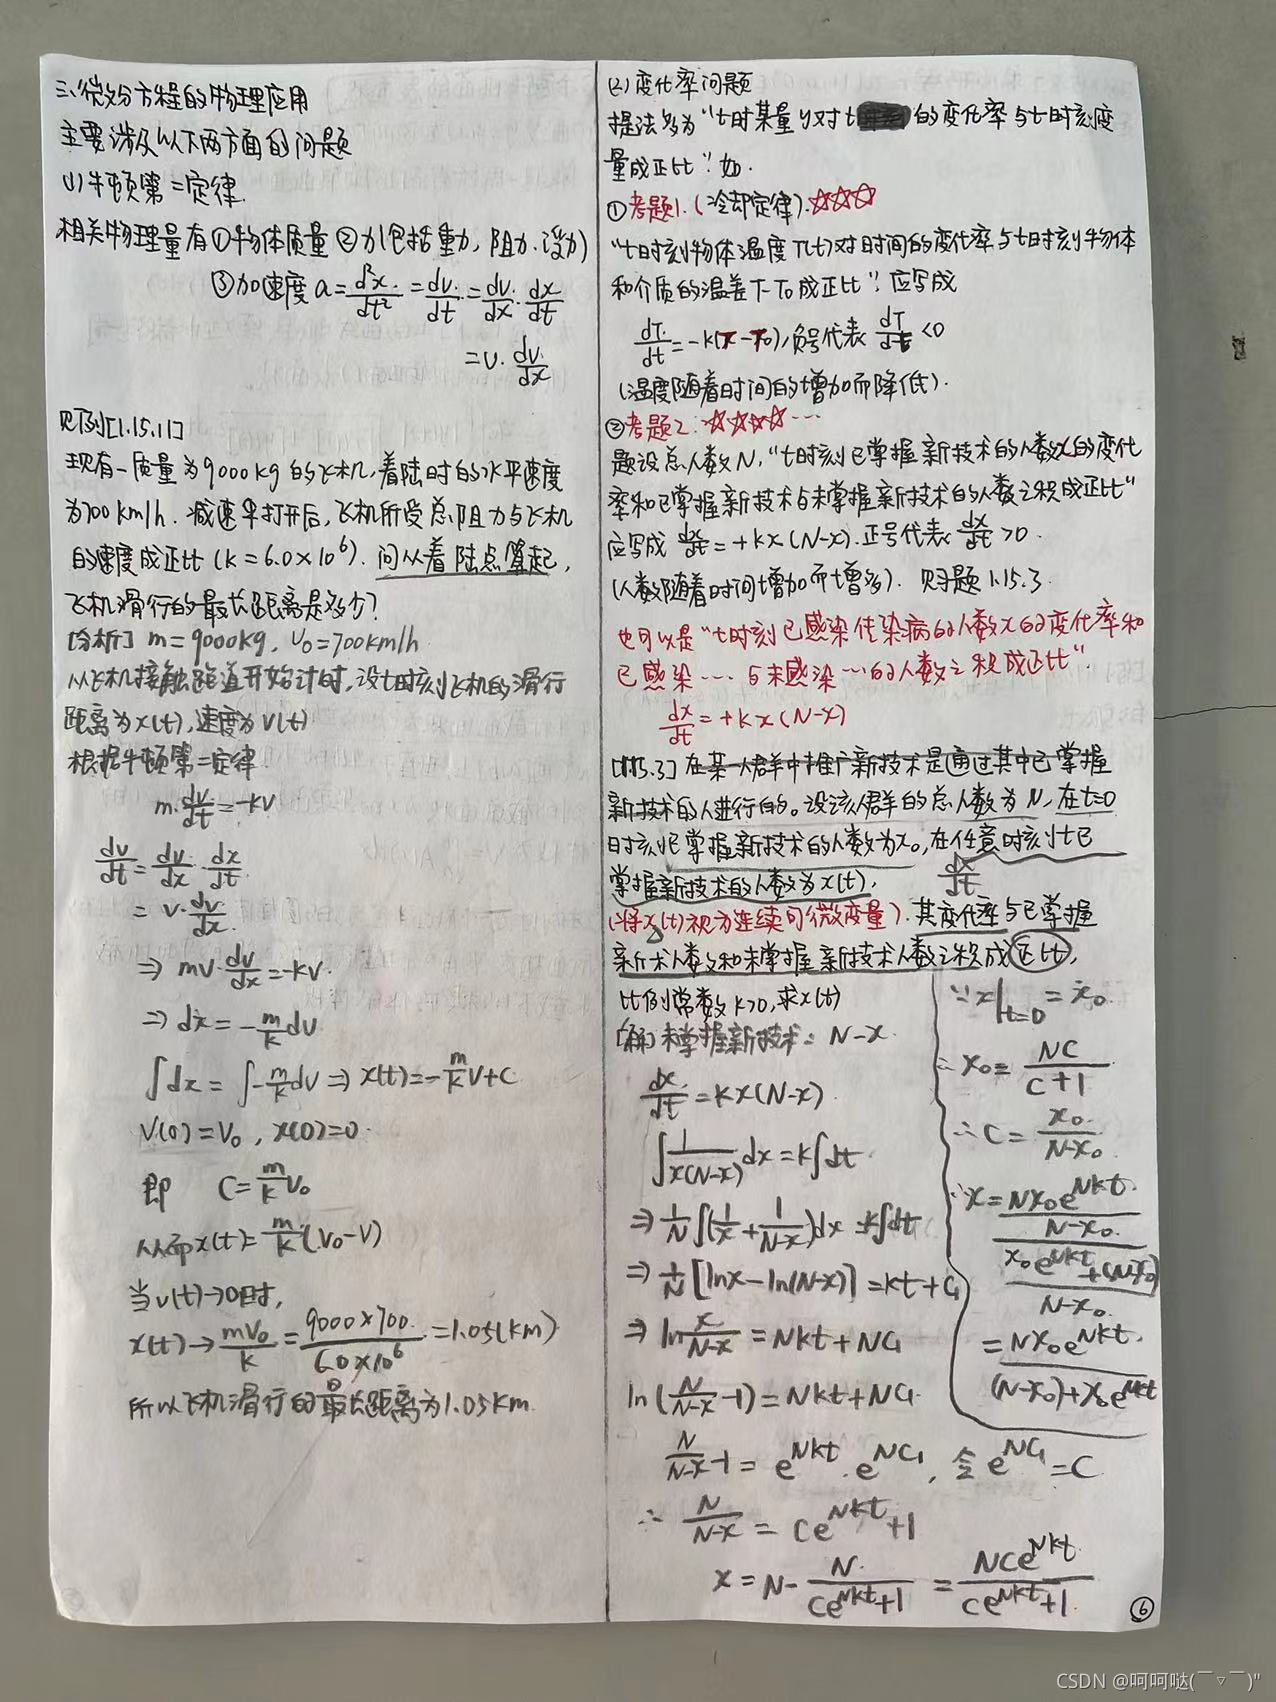 三、微分方程的物理应用
主要涉及以下两方面的问题
(1)牛顿第二定律.
相关物理量有①物体质量②力(包括重力,阻力、浮力)
③加速度 a=d²x/dt²=dv/dt=dv/dx·dx/dt
=v·dv/dx
见例[1.15.11]
现有一质量为9000kg的飞机,着陆时的水平速度
为700km/h.减速伞打开后,飞机所受总阻力与飞机
的速度成正比(k=6.0×10⁶).问从着陆点算起,
飞机滑行的最长距离是多少?
[分析] m=9000kg, v₀=700km/h
从飞机接触跑道开始计时,设t时刻飞机的滑行
距离为x(t),速度为v(t)
根据牛顿第二定律
m·dv/dt=-kv
dv/dt=dv/dx·dx/dt
=v·dv/dx.
⇒ mv·dv/dx=-kv.
⇒ dx=-m/k dv
∫dx=∫-m/k dv⇒x(t)=-m/k v+C
v(0)=v₀, x(0)=0.
即 C=m/k v₀
从而x(t)=m/k(v₀-v)
当v(t)→0时,
x(t)→mv₀/k=9000×700/6.0×10⁶=1.05(km)
所以飞机滑行的最长距离为1.05km.
(2)变化率问题
提法多为“t时某量y对t的变化率与t时刻度
量成正比”.如.
①考题1.(冷却定律).☆☆☆
“t时刻物体温度T(t)对时间的变化率与t时刻物体
和介质的温差T-T₀成正比”.应写成
dT/dt=-k(T-T₀),负号代表dT/dt<0
(温度随着时间的增加而降低).
②考题2:☆☆☆☆…
题设总人数N,“t时刻已掌握新技术的人数x的变化
率和已掌握新技术与未掌握新技术的人数之积成正比”
应写成 dx/dt=+kx(N-x).正号代表dx/dt>0.
(人数随着时间增加而增多). 见习题1.15.3.
也可以是“t时刻已感染传染病的人数x的变化率和
已感染…与未感染…的人数之积成正比”.
dx/dt=+kx(N-x)
[1.15.3]在某一人群中推广新技术是通过其中已掌握
新技术的人进行的。设该人群的总人数为N,在t=0
时刻已掌握新技术的人数为x₀,在任意时刻t已
掌握新技术的人数为x(t), dx/dt
(将x(t)视为连续可微变量).其变化率与已掌握
新术人数和未掌握新技术人数之积成正比,
比例常数k>0,求x(t)
[解]未掌握新技术:N-x.
dx/dt=kx(N-x).
∫1/x(N-x) dx=k∫dt.
⇒1/N∫(1/x+1/N-x)dx=k∫dt
⇒1/N[lnx-ln(N-x)]=kt+C₁
⇒ln x/N-x=Nkt+NC₁
ln(N/N-x-1)=Nkt+NC₁.
N/N-x-1=e^Nkt·e^NC₁,令e^NC₁=C
∴ N/N-x=Ce^Nkt+1
x=N-N/Ce^Nkt+1=NCe^Nkt/Ce^Nkt+1
∵x|t=0=x₀.
∴x₀=NC/C+1
∴C=x₀/N-x₀
∴x=Nx₀e^Nkt/N-x₀/x₀e^Nkt+(N-x₀)/N-x₀
=Nx₀e^Nkt/(N-x₀)+x₀e^Nkt
⑥
CSDN @呵呵哒(￣▽￣)"